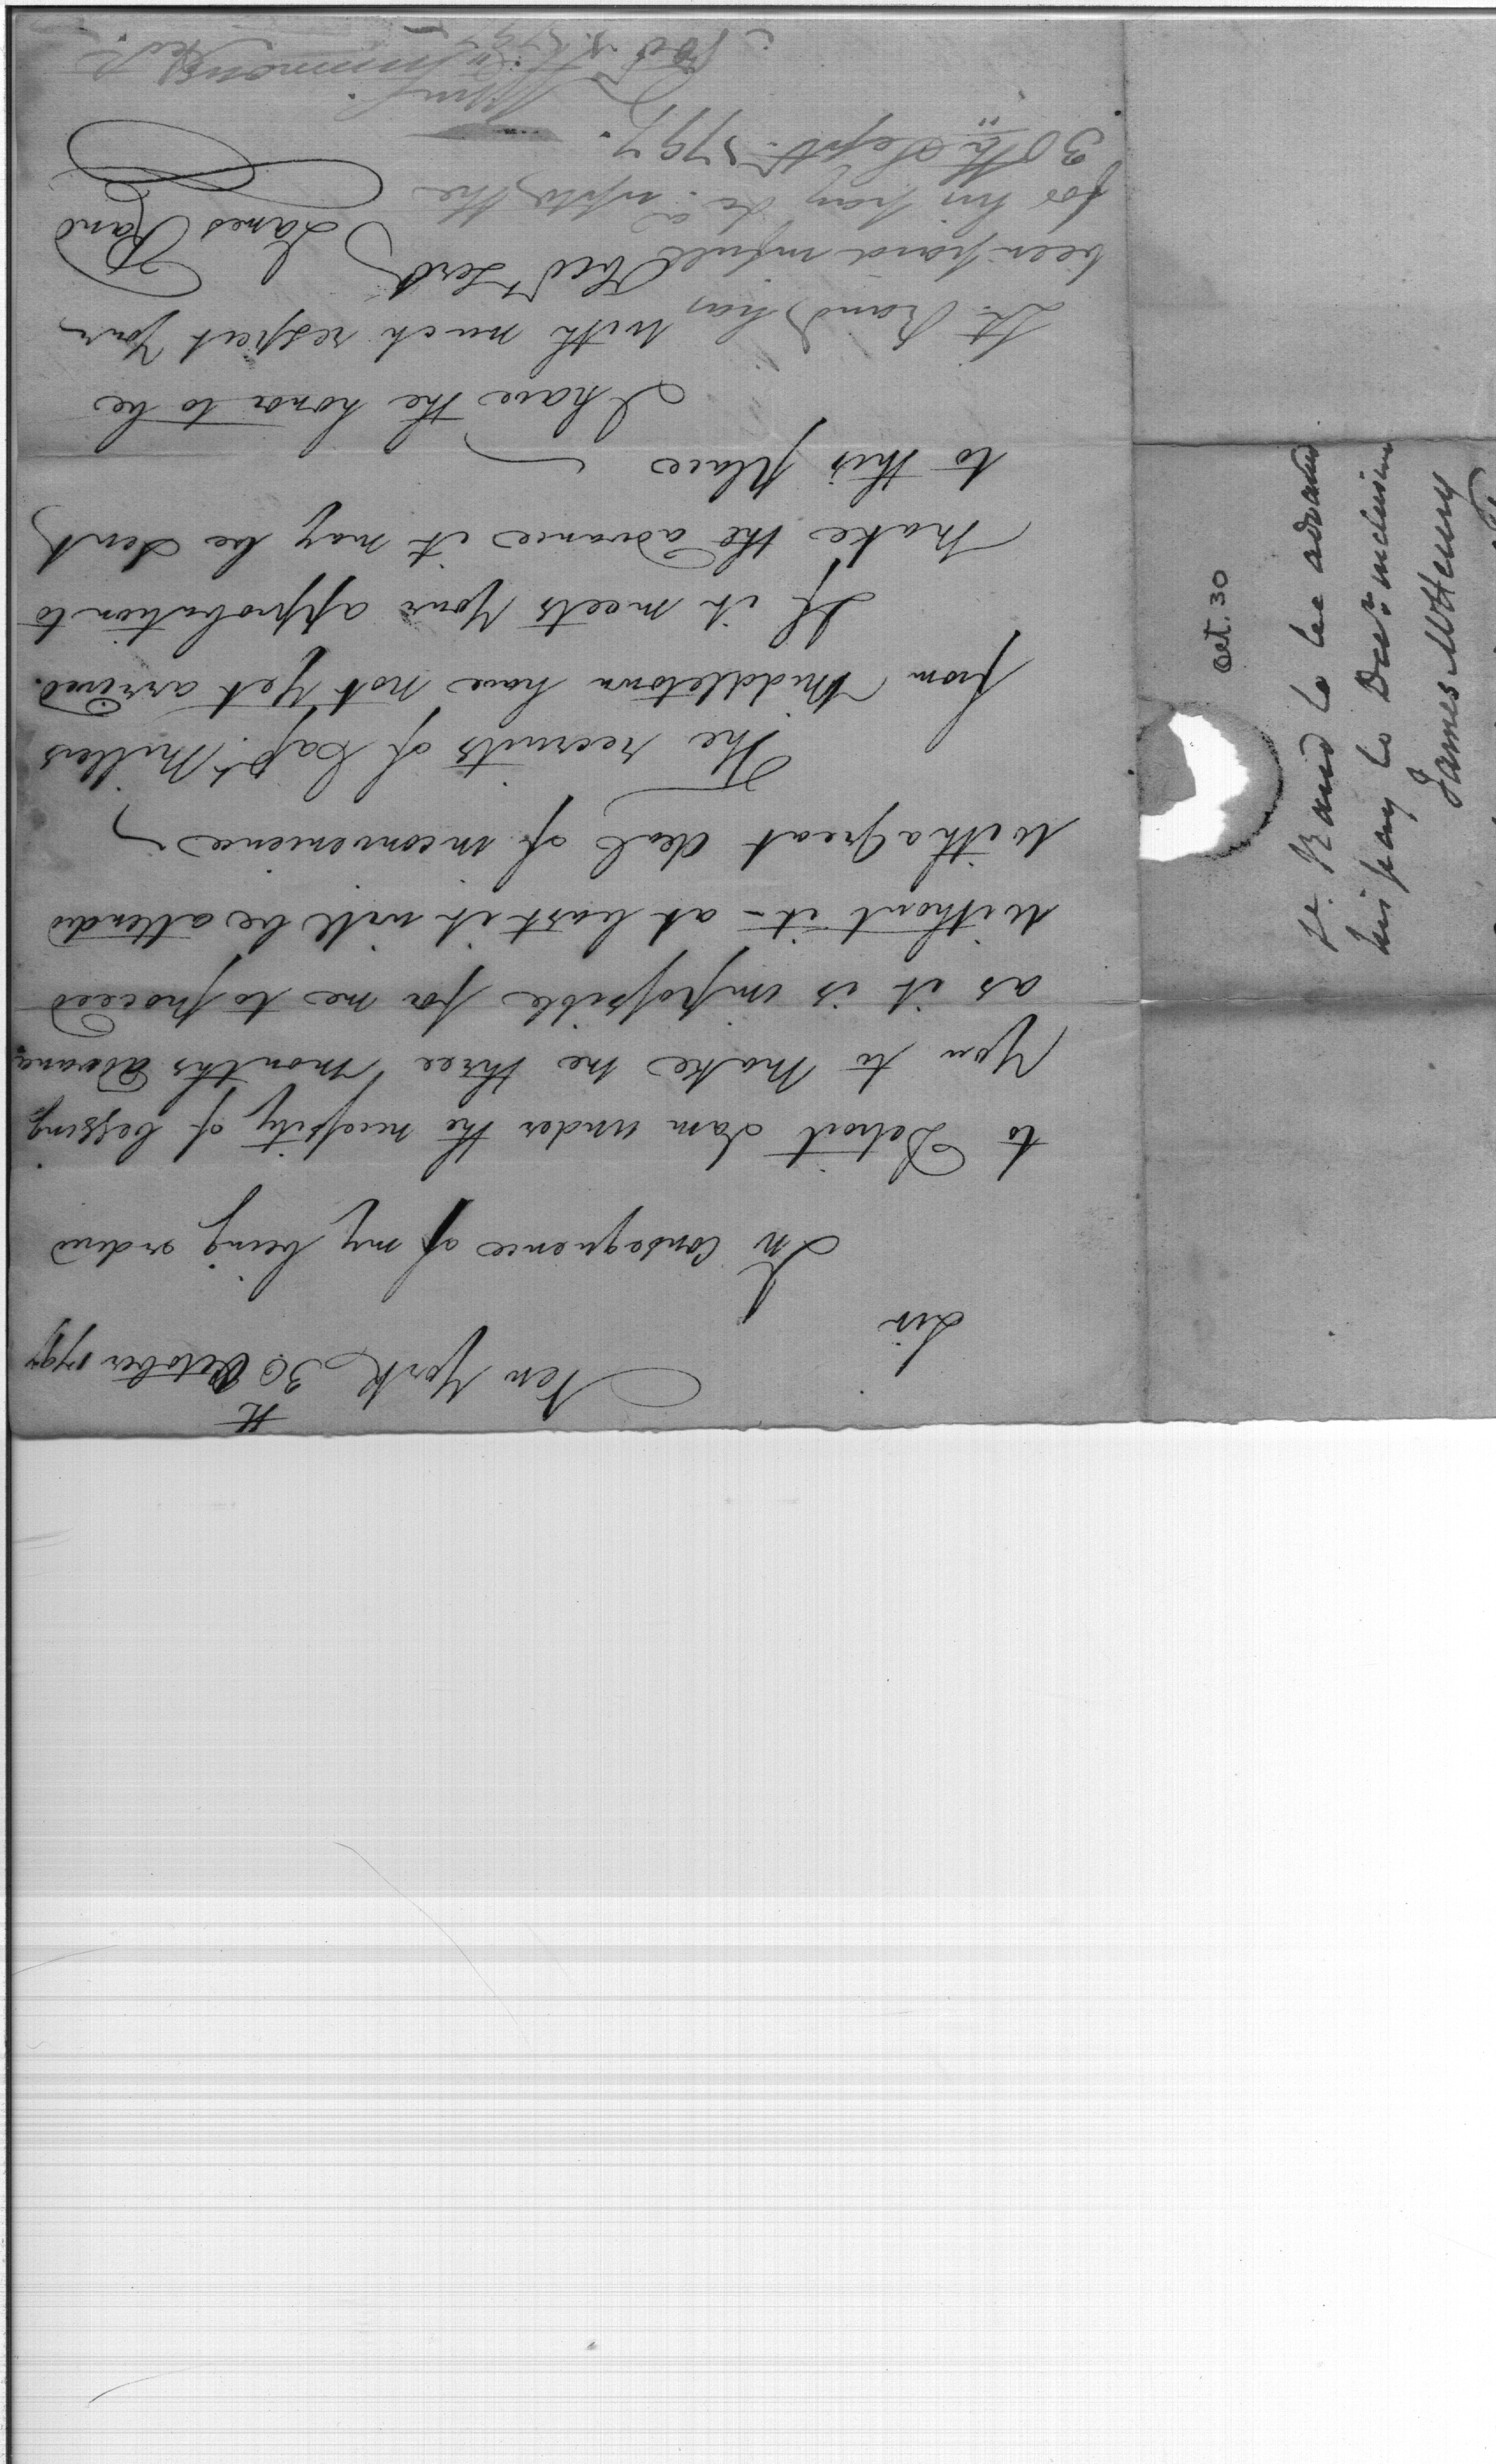 New York 30 October 1797
Sir
In Consequence of my being orderd
to Detroit I am under the necessity of begging
You to make me three months advance
as it is impossible for me to proceed
without it - at least it will be attended
with a great deal of inconvenience
The recruits of Capt Millers
from Middletown have not Yet arrived.
If it meets Your approbation to
make the advance it may be Sent
to this place
I have the honor to be
with much respect Your
Obed Servt
James Rand
Lt. Rand has
been paid in full
for his pay &c. up to the
30th Sept. 1797.
Wm Simmons
Oct. 30
Lt. Rand to be advanced
his pay to Decr. inclusive
James McHenry